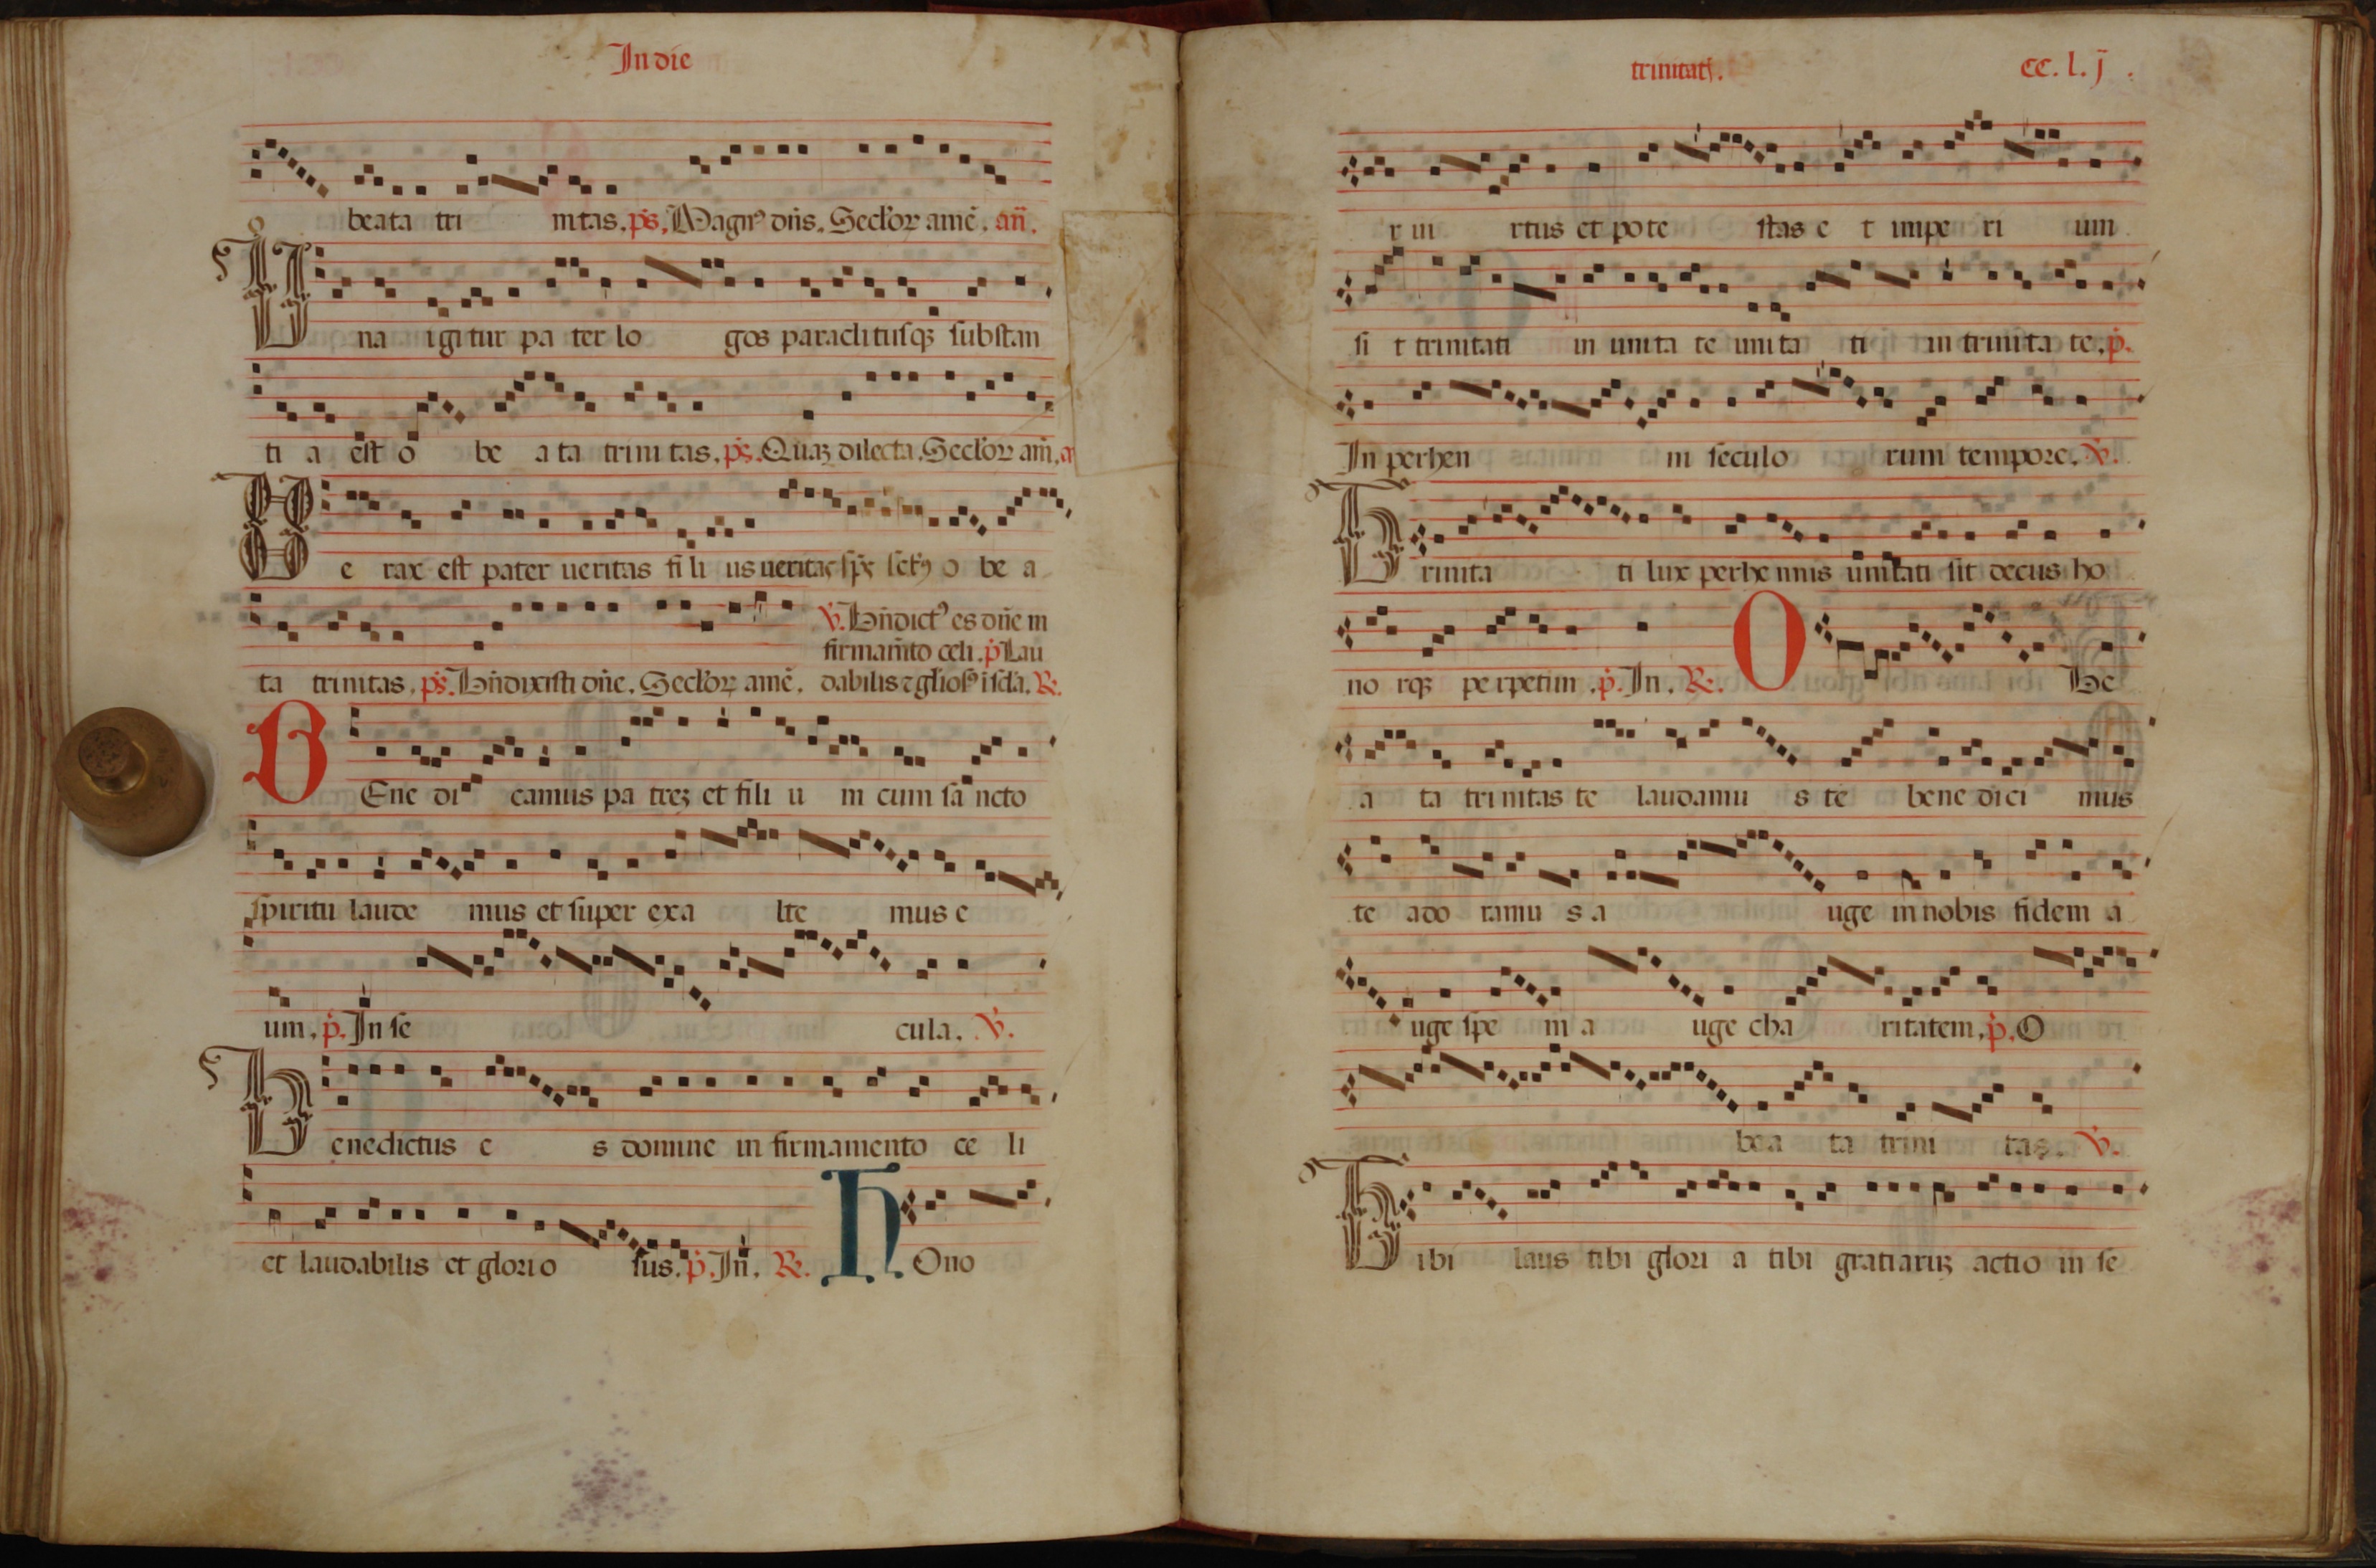 In die
o beata tri nitas. ps. Magn⁹ dñs. Seclorꝝ amē. añ.
Una igitur pa ter lo gos paraclitusqꝫ substan
ti a est o be ata trini tas. ps. Quaꝫ dilecta. Seclorꝝ am̄. a
Verax est pater ueritas fi li us ueritas sp̄s sct⁹ o be a
℣. Bn̄dict⁹ es dn̄e in
firmam̄to celi. p̄ Lau
ta trinitas. ps. Bn̄dixisti dn̄e. Seclorꝝ amē. dabilis ⁊ glios⁹ i scła. ℟.
BEne di camus pa treꝫ et fili u m cum sa ncto
spiritu laude mus et super exa lte mus e
um. p̄. In se cula. ℣.
Benedictus e s domine in firmamento ce li
et laudabilis et glorio sus. p̄. In. ℟. HOno
trinitatis. cc. l. j.
r ui rtus et pote stas e t impe ri um
si t trinitati in unita te unita ti in trinita te. p̄.
In perhen ni seculo rum tempore. ℣.
Trinita ti lux perhe nnis unitati sit decus ho
no rqꝫ pe rpetim. p̄. In. ℟. O Be
a ta trinitas te laudamu s te bene dici mus
te ado ramu s a uge in nobis fidem a
uge spe m a uge cha ritatem. p̄. O
bea ta trini tas. ℣.
Tibi laus tibi glori a tibi gratiaruꝫ actio in se